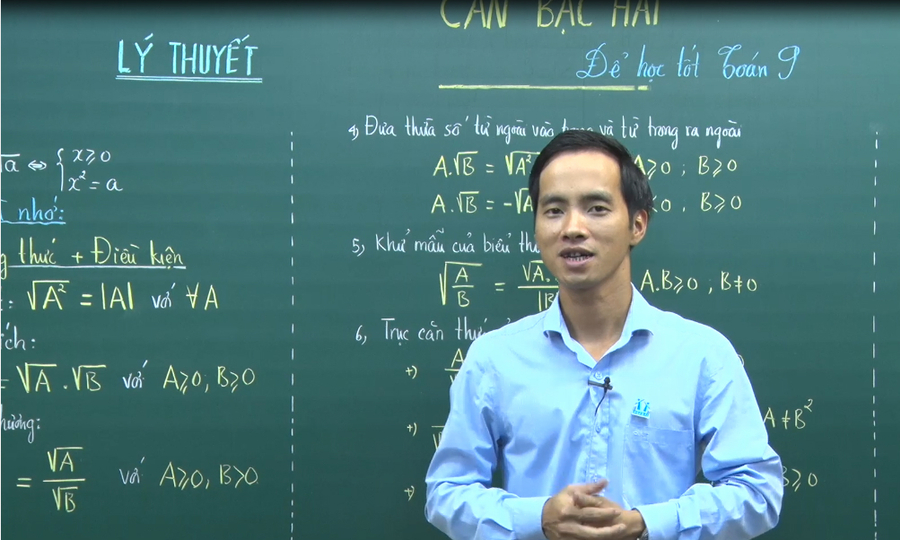 CĂN BẬC HAI
LÝ THUYẾT
Để học tốt Toán 9
√a ⇔ { x ≥ 0
x² = a
nhớ:
thức + Điều kiện
√A² = |A| với ∀A
= √A . √B với A ≥ 0; B ≥ 0
= √A / √B với A ≥ 0, B > 0
4, Đưa thừa số từ ngoài vào trong và từ trong ra ngoài
A.√B = √A² A ≥ 0 ; B ≥ 0
A.√B = -√A < 0 , B ≥ 0
5, Khử mẫu của biểu
√A/B = √A. / |B| A.B ≥ 0 ; B ≠ 0
6, Trục căn
+) A
+) A ≠ B²
+)